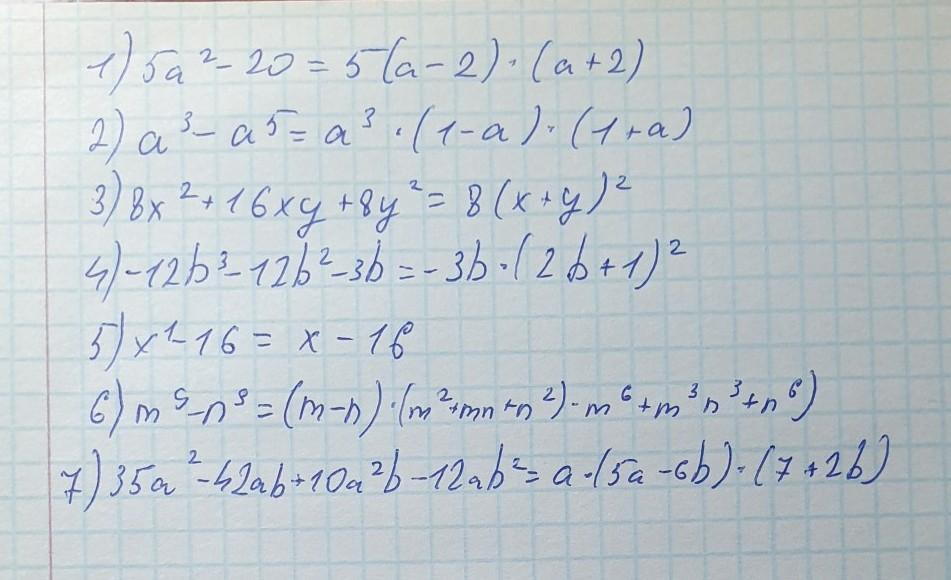 1) 5a² - 20 = 5(a - 2) · (a + 2)
2) a³ - a⁵ = a³ · (1 - a) · (1 + a)
3) 8x² + 16xy + 8y² = 8(x + y)²
4) -12b³ - 12b² - 3b = -3b · (2b + 1)²
5) x¹ - 16 = x - 16
6) m⁹ - n⁹ = (m - n) · (m² + mn + n²) · m⁶ + m³n³ + n⁶)
7) 35a² - 42ab + 10a²b - 12ab² = a · (5a - 6b) · (7 + 2b)